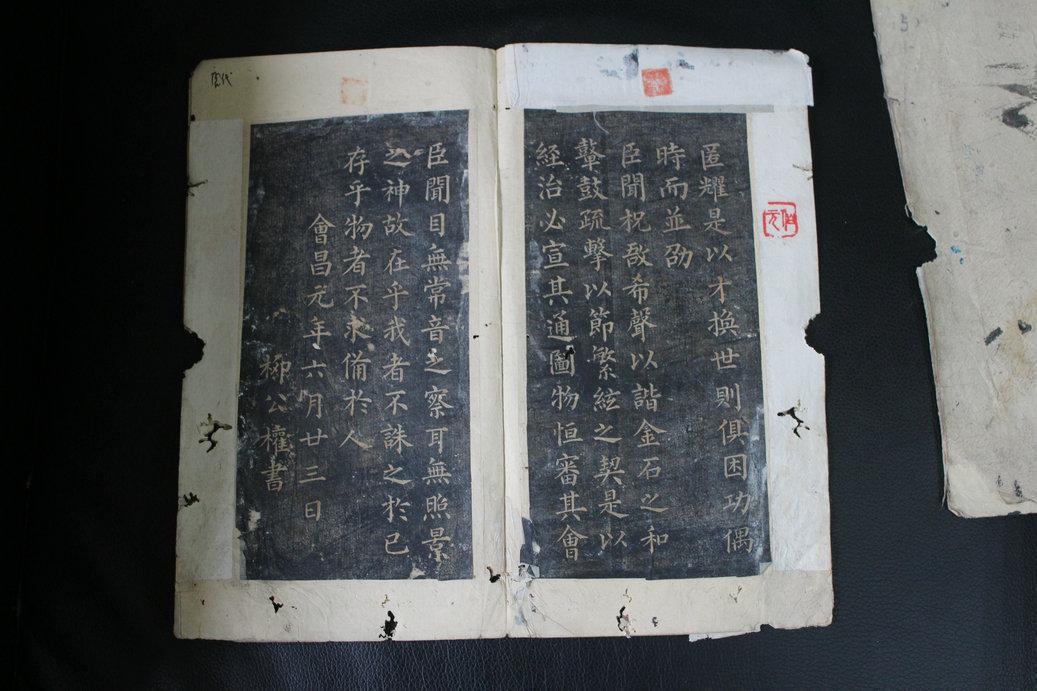 匿耀是以才換世則俱困功偶
時而並劭
臣聞柷敔希聲以諧金石之和
鼙鼓疏擊以節繁絃之契是以
経治必宣其通圖物恒審其會
臣聞目無常音之察耳無照景
之神故在乎我者不誅之於己
存乎物者不求備於人
會昌元年六月廿三日
柳公權書